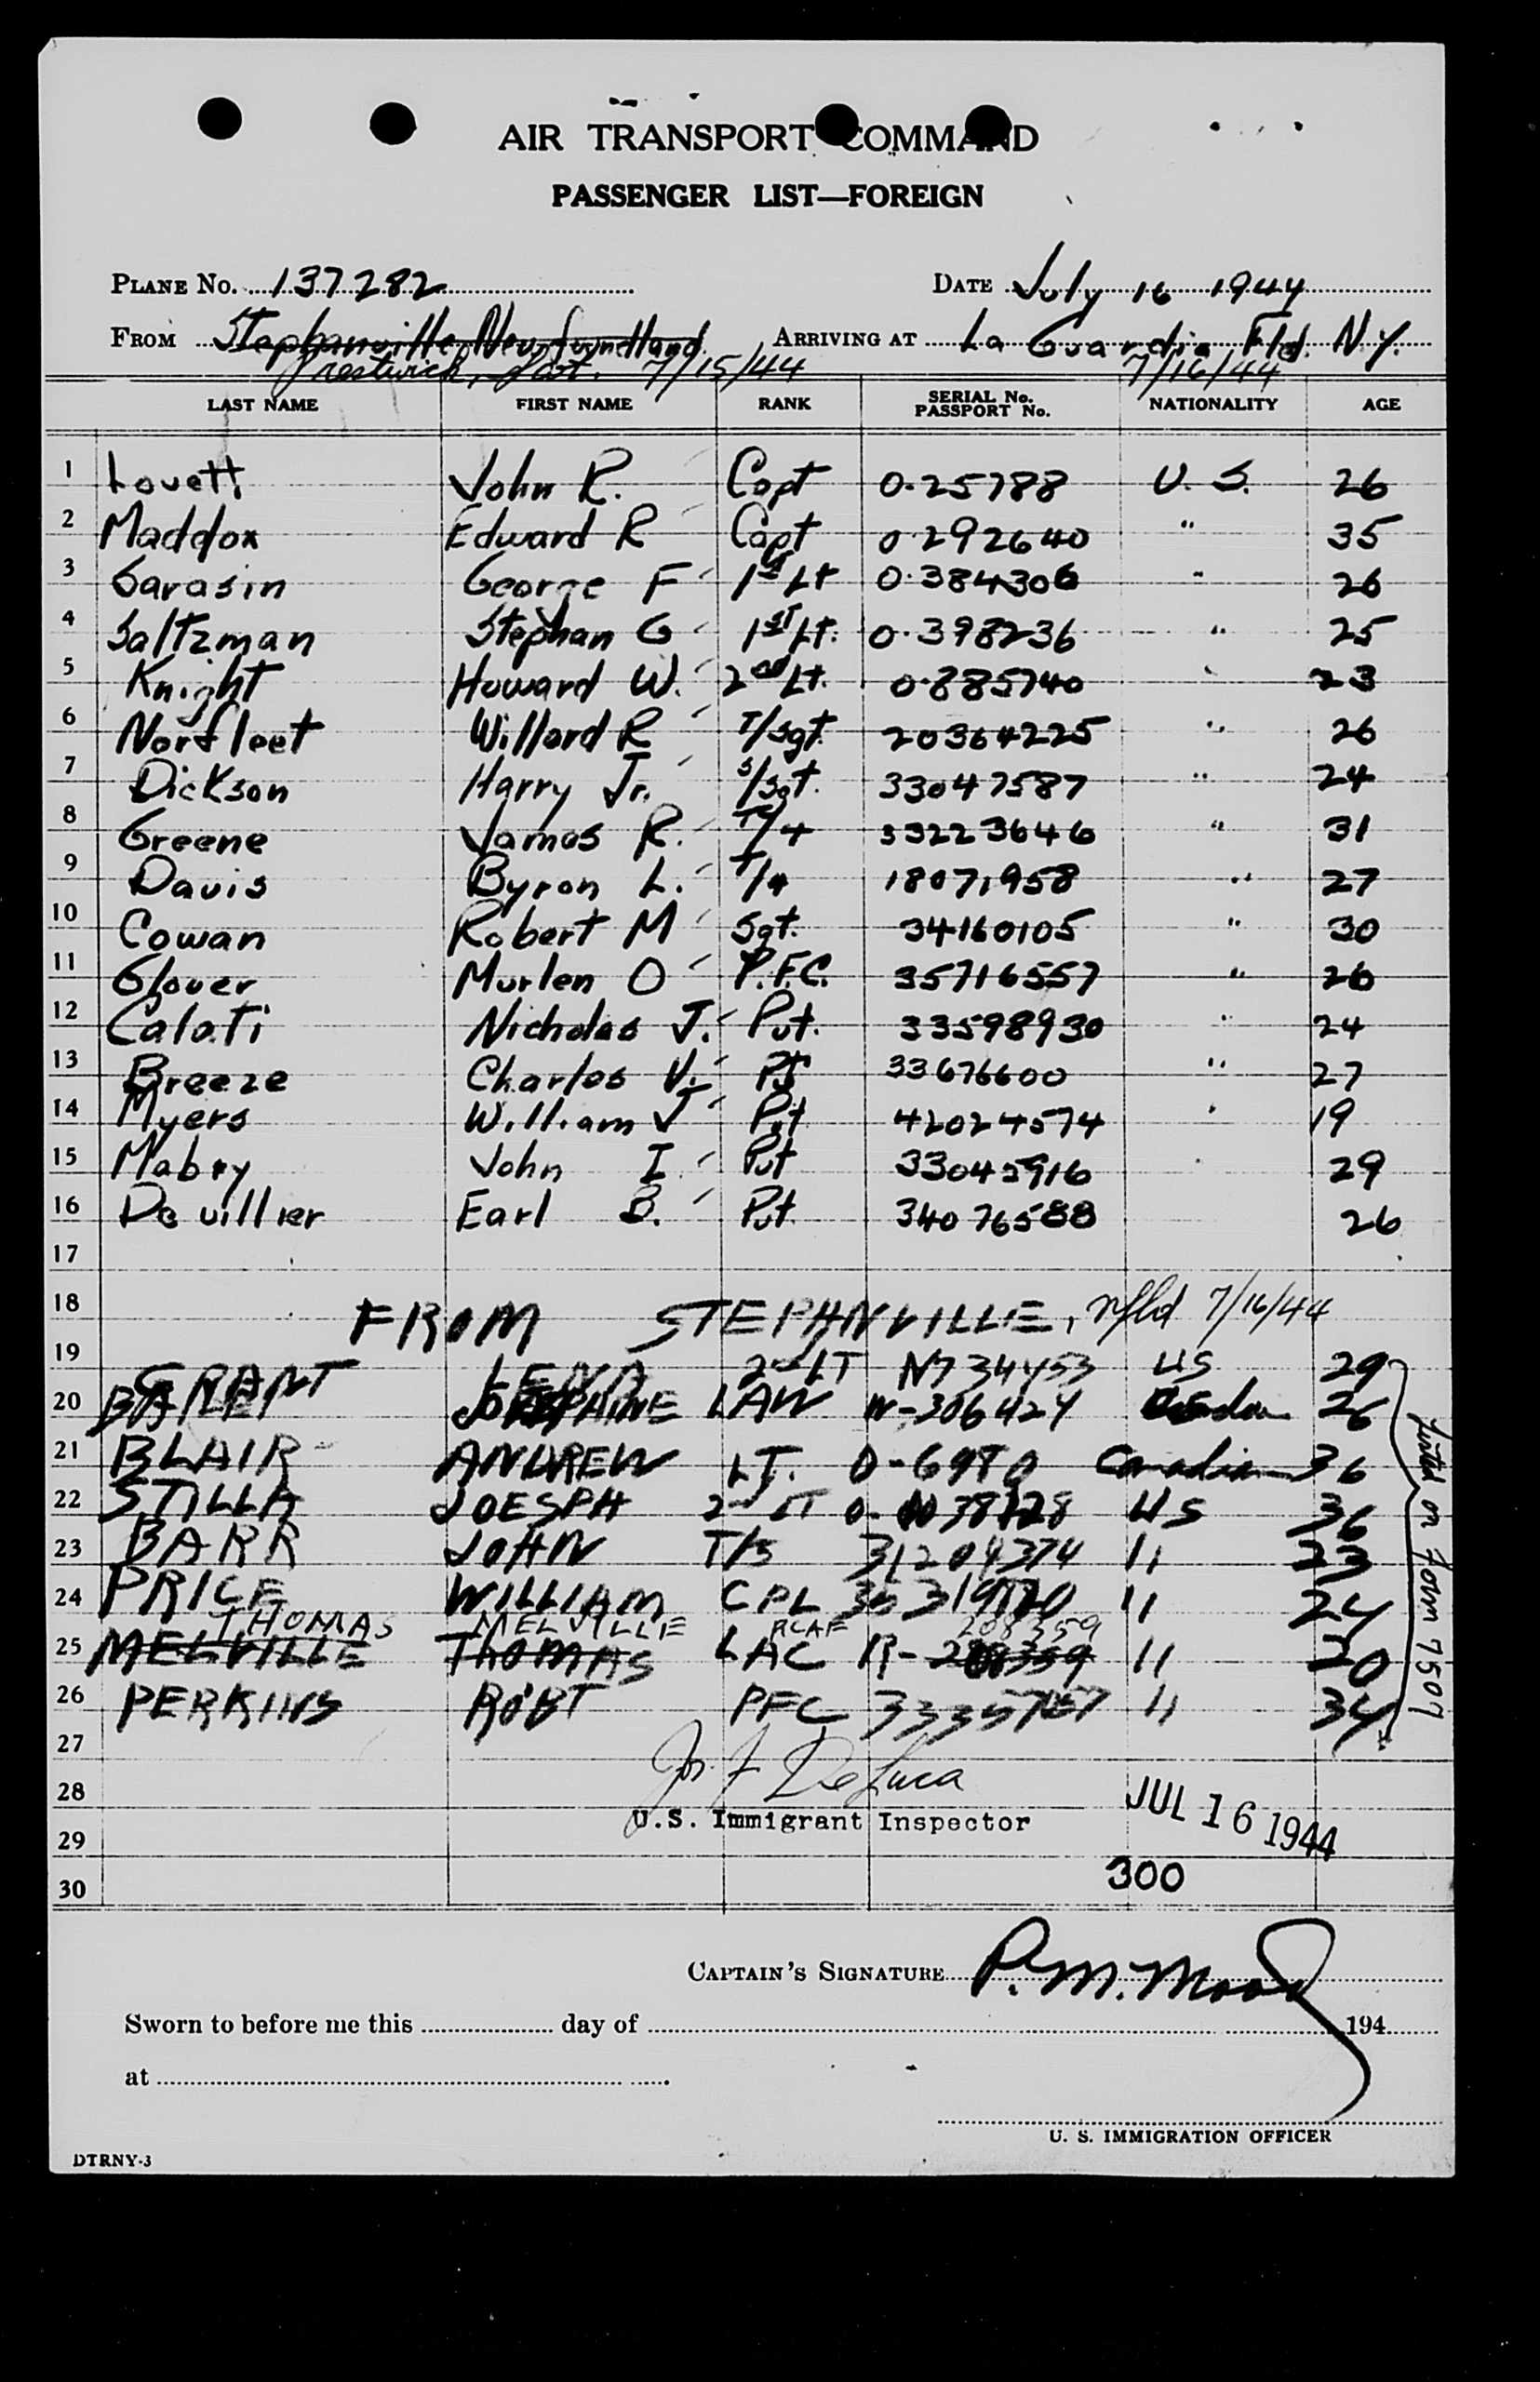 AIR TRANSPORT COMMAND
PASSENGER LIST—FOREIGN
PLANE NO. 137282 DATE July 16 1944
FROM Stephanville Newfoundland ARRIVING AT La Guardia Fld. N.Y.
Prestwick, Scot. 7/15/44 7/16/44
LAST NAME FIRST NAME RANK SERIAL No. PASSPORT No. NATIONALITY AGE
1 Lovett John R. Capt 0-25788 U.S. 26
2 Maddox Edward R Capt 0-292640 " 35
3 Sarasin George F 1st Lt 0-384306 " 26
4 Saltzman Stephan G 1st Lt. 0-398236 " 25
5 Knight Howard W. 2nd Lt. 0-885740 " 23
6 Norfleet Willard R T/Sgt. 20364225 " 26
7 Dickson Harry Jr. S/Sgt. 33047587 " 24
8 Greene James R. T/4 33223646 " 31
9 Davis Byron L. T/4 18071958 " 27
10 Cowan Robert M Sgt. 34160105 " 30
11 Glover Murlen O P.F.C. 35716557 " 26
12 Calati Nicholas J. Pvt. 33598930 " 24
13 Breeze Charles V. 33676600 " 27
14 Myers William J Pvt 42024574 " 19
15 Mabry John I. Pvt 33042916 29
16 Devillier Earl B. Pvt. 34076588 26
17
18 FROM STEPHNVILLE, Nfld 7/16/44
19 GRANT LENA 2nd LT N734453 US 29
20 JOSEPHINE LAW W-306424 26
21 BLAIR ANDREW LT. Canadian 36
22 STILLA JOESPH 2nd LT US 36
23 BARR JOHN T/5 31204374 11 23
24 PRICE WILLIAM CPL 11 24
THOMAS MELVILLE RCAF 208359
25 MELVILLE THOMAS LAC R- 11 20
26 PERKINS ROBT PFC 11 34
Listed on Form 7507
27
Jos. F. DeLuca
28
U.S. Immigrant Inspector JUL 16 1944
29
300
30
CAPTAIN'S SIGNATURE P. M. Mood
Sworn to before me this day of 194
at
U. S. IMMIGRATION OFFICER
DTRNY-3